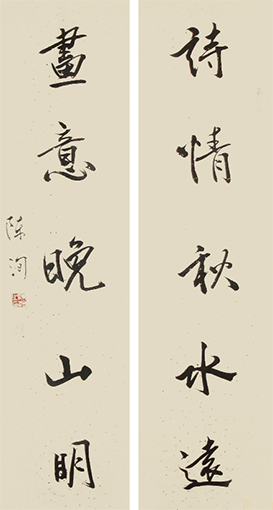 詩情秋水遠
畫意晚山明
陳洵